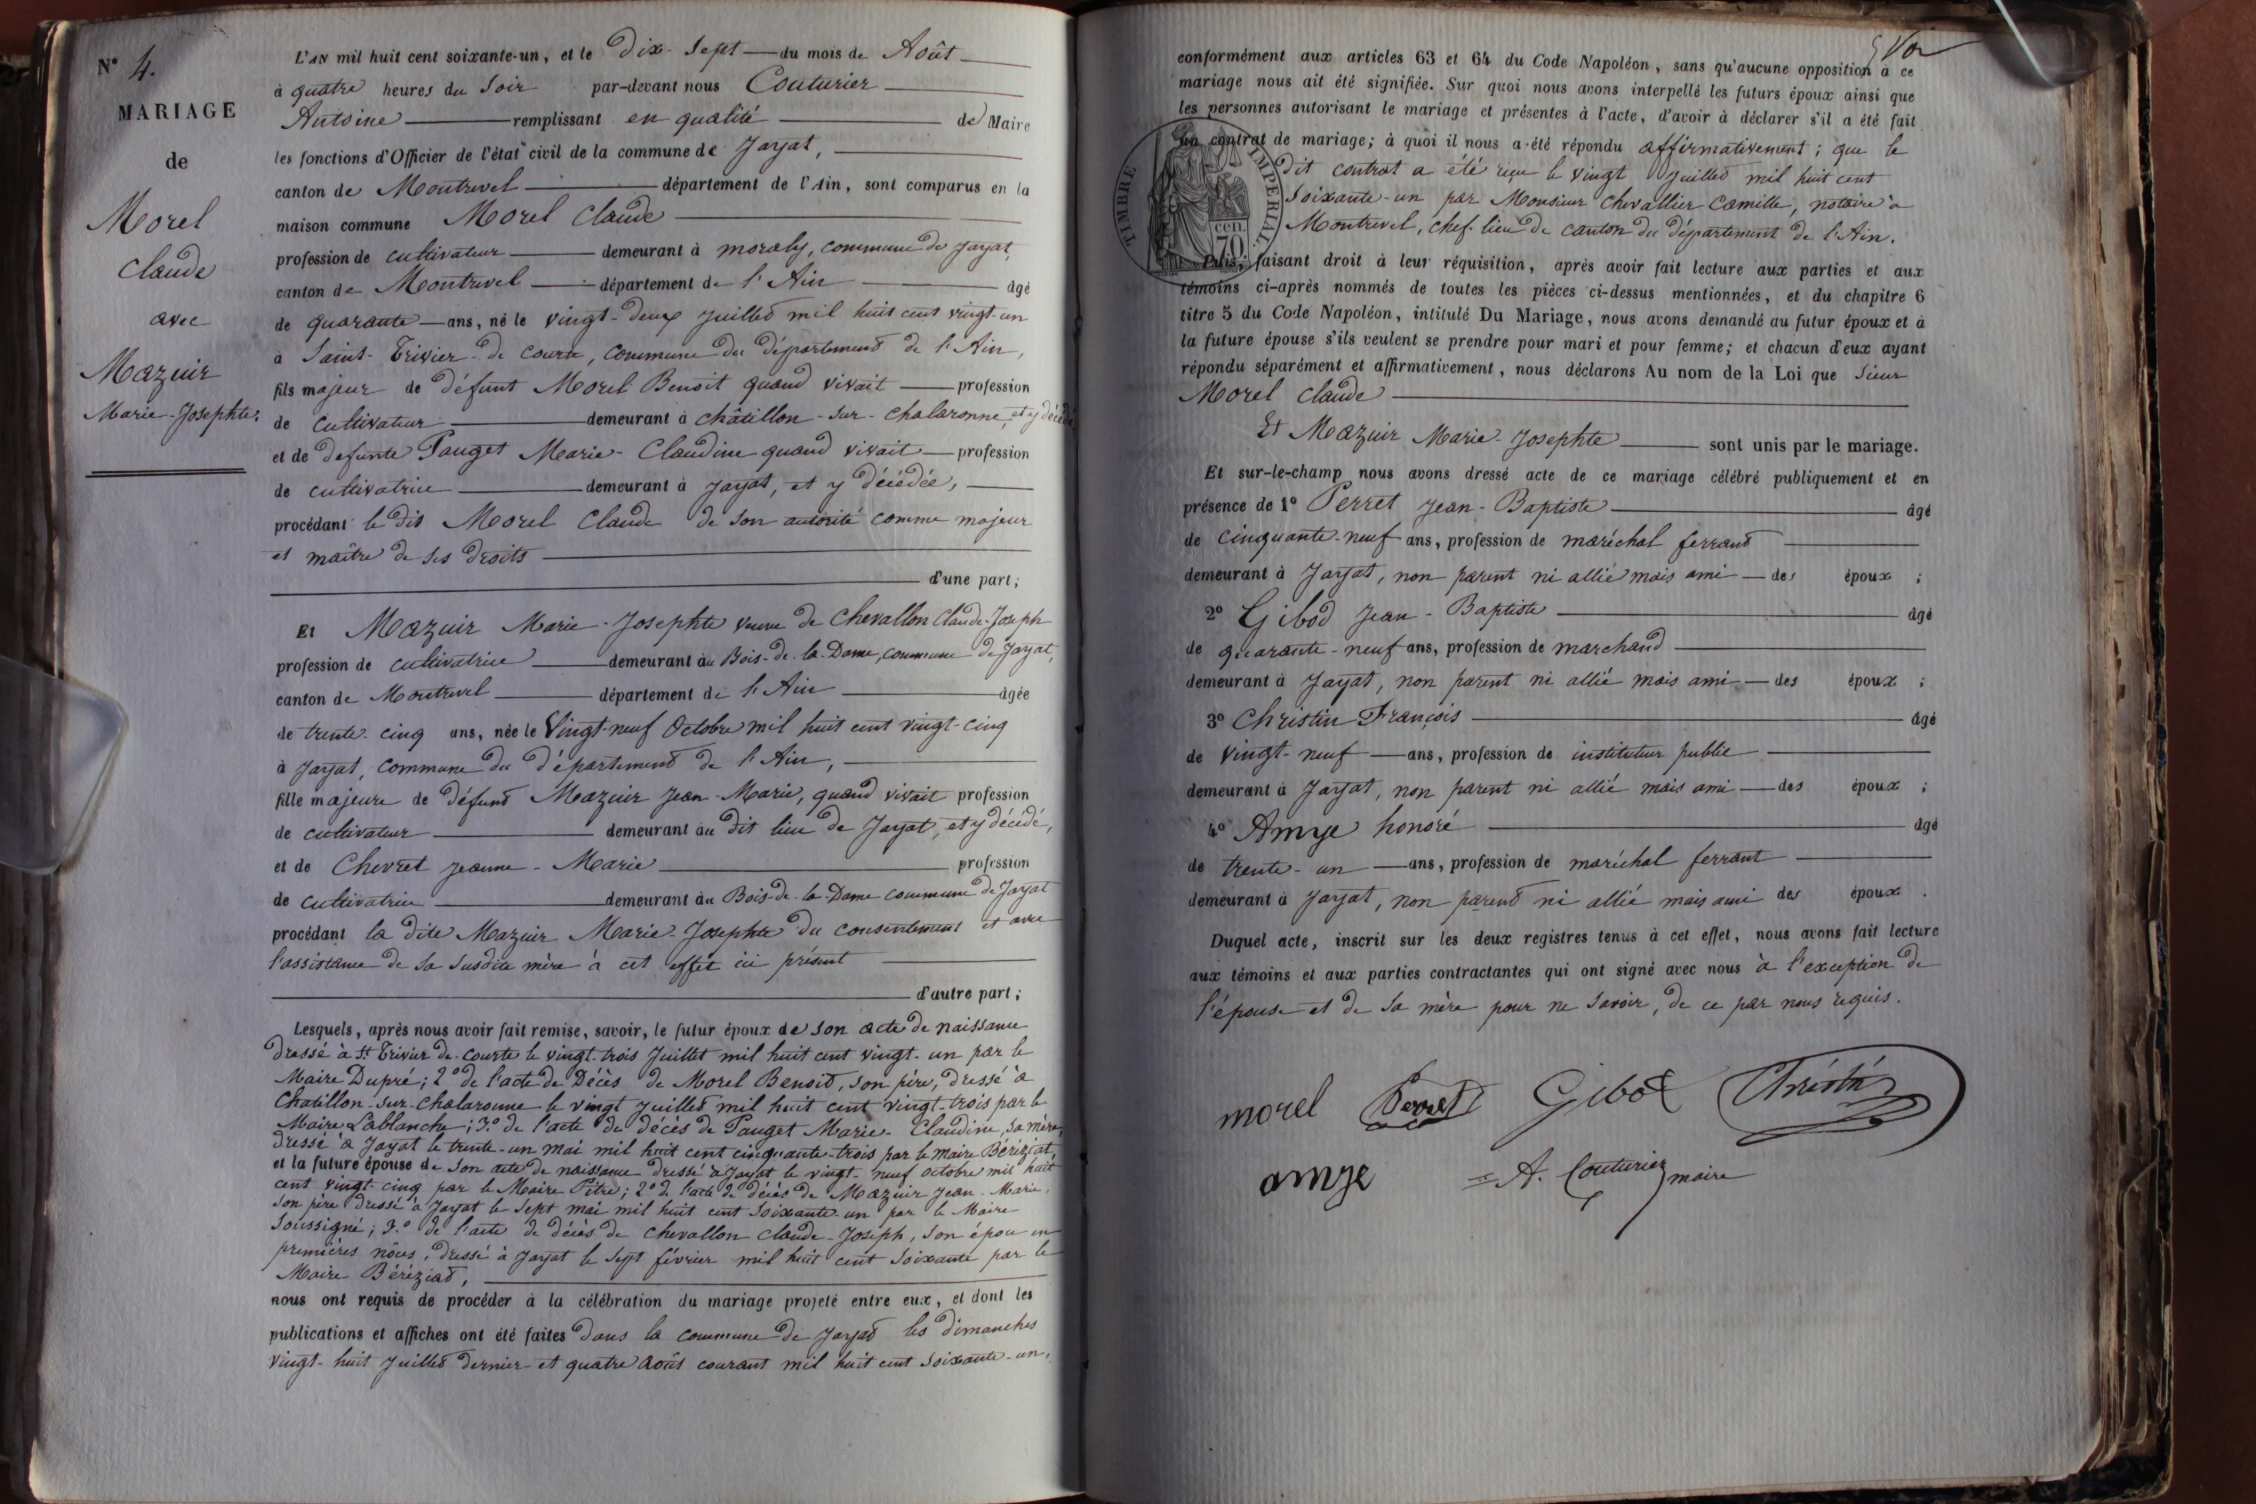 N° 4.
MARIAGE
de
Morel
Claude
avec
Mazuir
Marie-Josephte.
L'AN mil huit cent soixante-un, et le Dix-Sept du mois de Août
à quatre heures du Soir par-devant nous Couturier
Antoine remplissant en qualité de Maire
les fonctions d'Officier de l'état civil de la commune de Jayat,
canton de Montrevel département de l'Ain, sont comparus en la
maison commune Morel Claude
profession de cultivateur demeurant à moraly, commune de Jayat,
canton de Montrevel département de l'Ain âgé
de quarante ans, né le vingt-deux Juillet mil huit cent vingt-un
à Saint-Trivier-de courte, commune du département de l'Ain,
fils majeur de défunt Morel Benoit quand vivait profession
de cultivateur demeurant à châtillon-sur-chalaronne, et y décédé
et de defunte Pauget Marie-Claudine quand vivait profession
de cultivatrice demeurant à Jayat, et y décédée,
procédant le dit Morel Claude de son autorité comme majeur
et maître de ses droits
d'une part;
Et Mazuir Marie-Josephte veuve de Chevallon Claude-Joseph
profession de cultivatrice demeurant au Bois-de-la-Dame, commune de Jayat,
canton de Montrevel département de l'Ain âgée
de trente-cinq ans, née le Vingt-neuf Octobre mil huit cent vingt-cinq
à Jayat, commune du département de l'Ain,
fille majeure de défunt Mazuir Jean-Marie, quand vivait profession
de cultivateur demeurant au dit lieu de Jayat, et y décédé,
et de Chevret Jeanne-Marie profession
de cultivatrice demeurant au Bois-de-la-Dame commune de Jayat
procédant la dite Mazuir Marie-Josephte du consentement et avec
l'assistance de sa susdite mère à cet effet ici présent
d'autre part;
Lesquels, après nous avoir fait remise, savoir, le futur époux de son acte de naissance
dressé à St Trivier-de-courte le vingt-trois Juillet mil huit cent vingt-un par le
Maire Dupré; 2° de l'acte de Décès de Morel Benoit, son père, dressé à
Chatillon-sur-Chalaronne le vingt Juillet mil huit cent vingt-trois par le
Maire Lablanche; 3° de l'acte de décès de Pauget Marie-Claudine, sa mère,
dressé à Jayat le trente-un mai mil huit cent cinquante-trois par le Maire Béréziat,
et la future épouse de son acte de naissance dressé à Jayat le vingt-neuf octobre mil huit
cent vingt-cinq par le Maire Pitre; 2° de l'acte de décès de Mazuir Jean-Marie,
son père dressé à Jayat le sept mai mil huit cent soixante-un par le Maire
soussigné; 3° de l'acte de décès de Chevallon Claude-Joseph, son épou en
premières nôces, dressé à Jayat le sept février mil huit cent soixante par le
Maire Béréziat,
nous ont requis de procéder à la célébration du mariage projeté entre eux, et dont les
publications et affiches ont été faites dans la commune de Jayat les dimanches
vingt-huit Juillet dernier et quatre août courant mil huit cent soixante-un,
conformément aux articles 63 et 64 du Code Napoléon, sans qu'aucune opposition à ce
mariage nous ait été signifiée. Sur quoi nous avons interpellé les futurs époux ainsi que
les personnes autorisant le mariage et présentes à l'acte, d'avoir à déclarer s'il a été fait
un contrat de mariage; à quoi il nous a été répondu affirmativement; que le
dit contrat a été reçu le vingt Juillet mil huit cent
soixante-un par Monsieur Chevallier Camille, notaire à
Montrevel, chef-lieu de canton du département de l'Ain.
TIMBRE IMPERIAL.
cen.
70
Puis, faisant droit à leur réquisition, après avoir fait lecture aux parties et aux
témoins ci-après nommés de toutes les pièces ci-dessus mentionnées, et du chapitre 6
titre 5 du Code Napoléon, intitulé Du Mariage, nous avons demandé au futur époux et à
la future épouse s'ils veulent se prendre pour mari et pour femme; et chacun d'eux ayant
répondu séparément et affirmativement, nous déclarons Au nom de la Loi que Sieur
Morel Claude
Et Mazuir Marie-Josephte sont unis par le mariage.
Et sur-le-champ nous avons dressé acte de ce mariage célébré publiquement et en
présence de 1° Perret Jean-Baptiste âgé
de cinquante-neuf ans, profession de maréchal ferrant
demeurant à Jayat, non parent ni allié mais ami des époux ;
2° Gibod Jean-Baptiste âgé
de quarante-neuf ans, profession de marchand
demeurant à Jayat, non parent ni allié mais ami des époux ;
3° Christin François âgé
de vingt-neuf ans, profession de instituteur public
demeurant à Jayat, non parent ni allié mais ami des époux ;
4° Amye honoré âgé
de trente-un ans, profession de maréchal ferrant
demeurant à Jayat, non parent ni allié mais ami des époux .
Duquel acte, inscrit sur les deux registres tenus à cet effet, nous avons fait lecture
aux témoins et aux parties contractantes qui ont signé avec nous à l'exception de
l'épouse et de sa mère pour ne savoir, de ce par nous requis.
morel Perret Gibod Christin
amye A. Couturier maire